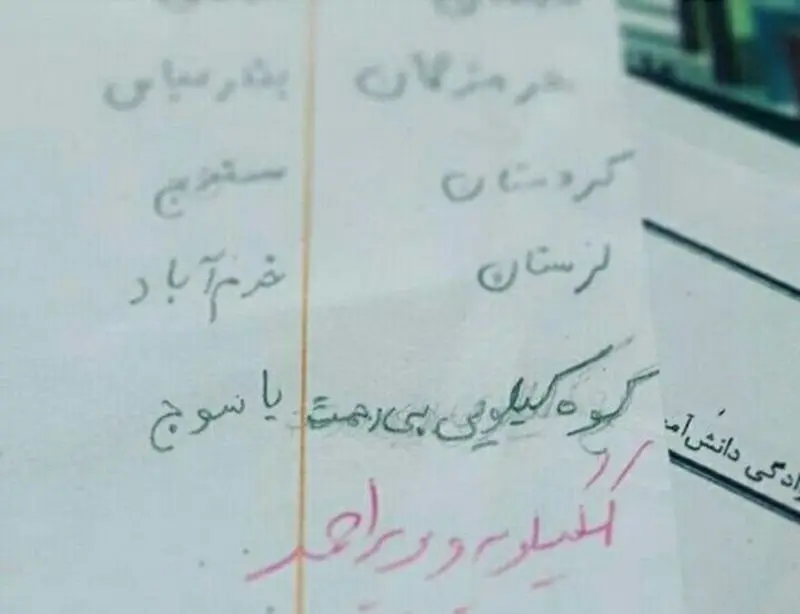 هرمزگان بندرعباس
کردستان سنندج
لرستان خرم‌آباد
گوه کیلویی بی رحمت یاسوج
کهگیلویه و بویراحمد